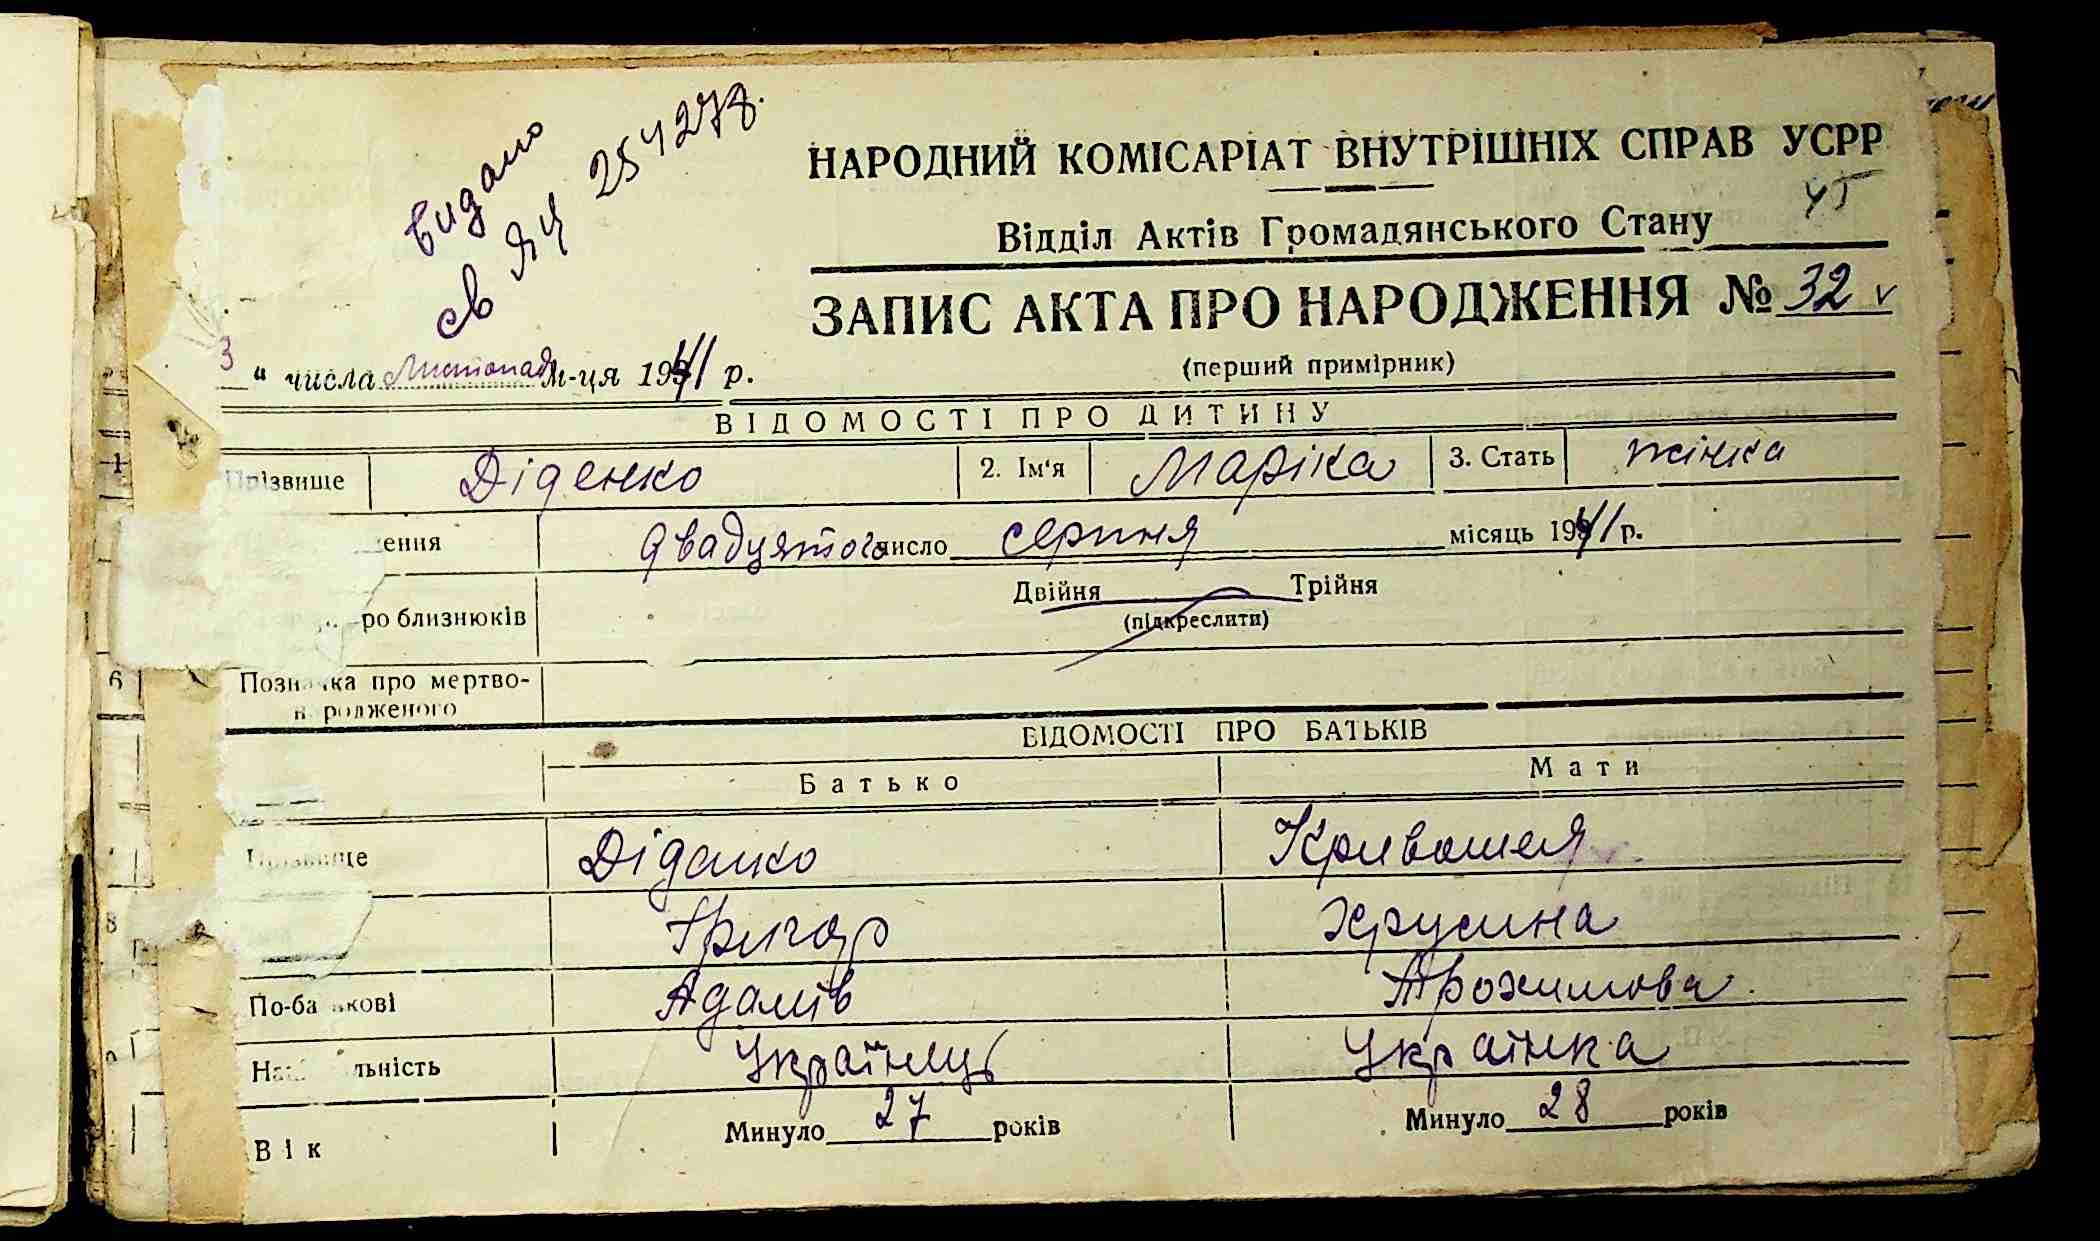 видано
св ЯЦ 254278.
НАРОДНИЙ КОМІСАРІАТ ВНУТРІШНІХ СПРАВ УСРР
45
Відділ Актів Громадянського Стану
ЗАПИС АКТА ПРО НАРОДЖЕННЯ № 32 v
(перший примірник)
3 " числа Листопад м-ця 1941 р.
ВІДОМОСТІ ПРО ДИТИНУ
Прізвище Діденко 2. Ім'я Маріка 3. Стать жінка
ення двадцятого число серпня місяць 1941 р.
Двійня Трійня
ро близнюків (підкреслити)
Позначка про мертво-
народженого
ВІДОМОСТІ ПРО БАТЬКІВ
Батько Мати
Прізвище Діденко Кривошея
Григор Хрусина
По-батькові Адамів Трохимова
Національність Українець Українка
Вік Минуло 27 років Минуло 28 років